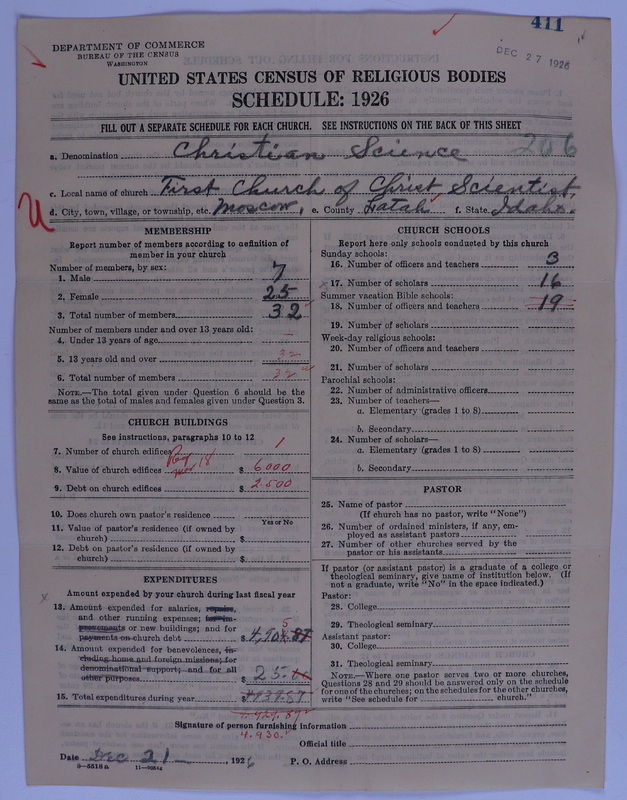 411
DEC 27 1926
DEPARTMENT OF COMMERCE
BUREAU OF THE CENSUS
WASHINGTON
UNITED STATES CENSUS OF RELIGIOUS BODIES
SCHEDULE: 1926
FILL OUT A SEPARATE SCHEDULE FOR EACH CHURCH. SEE INSTRUCTIONS ON THE BACK OF THIS SHEET
a. Denomination Christian Science 206
c. Local name of church First Church of Christ Scientist,
d. City, town, village, or township, etc. Moscow, e. County Latah f. State Idaho.
MEMBERSHIP
Report number of members according to definition of
member in your church
Number of members, by sex:
1. Male 7
2. Female 25
3. Total number of members 32
Number of members under and over 13 years old:
4. Under 13 years of age
5. 13 years old and over 32
6. Total number of members 32
NOTE.—The total given under Question 6 should be
same as the total of males and females given under Question 3.
CHURCH BUILDINGS
See instructions, paragraphs 10 to 12
7. Number of church edifices 1
8. Value of church edifices $ 6000
9. Debt on church edifices $ 2.500
10. Does church own pastor's residence
Yes or No
11. Value of pastor's residence (if owned by
church) $
12. Debt on pastor's residence (if owned by
church) $
EXPENDITURES
Amount expended by your church during last fiscal year
13. Amount expended for salaries, repairs,
and other running expenses; for im-
provements or new buildings; and for
payments on church debt $
14. Amount expended for benevolences, in-
cluding home and foreign missions; for
denominational support; and for all
other purposes $ 25
15. Total expenditures during year $
4.930.
CHURCH SCHOOLS
Report here only schools conducted by this church
Sunday schools:
16. Number of officers and teachers 3
17. Number of scholars 16
Summer vacation Bible schools:
18. Number of officers and teachers 19
19. Number of scholars
Week-day religious schools:
20. Number of officers and teachers
21. Number of scholars
Parochial schools:
22. Number of administrative officers
23. Number of teachers—
a. Elementary (grades 1 to 8)
b. Secondary
24. Number of scholars—
a. Elementary (grades 1 to 8)
b. Secondary
PASTOR
25. Name of pastor
(If church has no pastor, write "None")
26. Number of ordained ministers, if any, em-
ployed as assistant pastors
27. Number of other churches served by the
pastor or his assistants
If pastor (or assistant pastor) is a graduate of a college or
theological seminary, give name of institution below. (If
not a graduate, write "No" in the space indicated.)
Pastor:
28. College
29. Theological seminary
Assistant pastor:
30. College
31. Theological seminary
NOTE.—Where one pastor serves two or more churches,
Questions 28 and 29 should be answered only on the schedule
for one of the churches; on the schedules for the other churches,
write "See schedule for church."
Signature of person furnishing information
Official title
Date Dec 21, 1926 P. O. Address